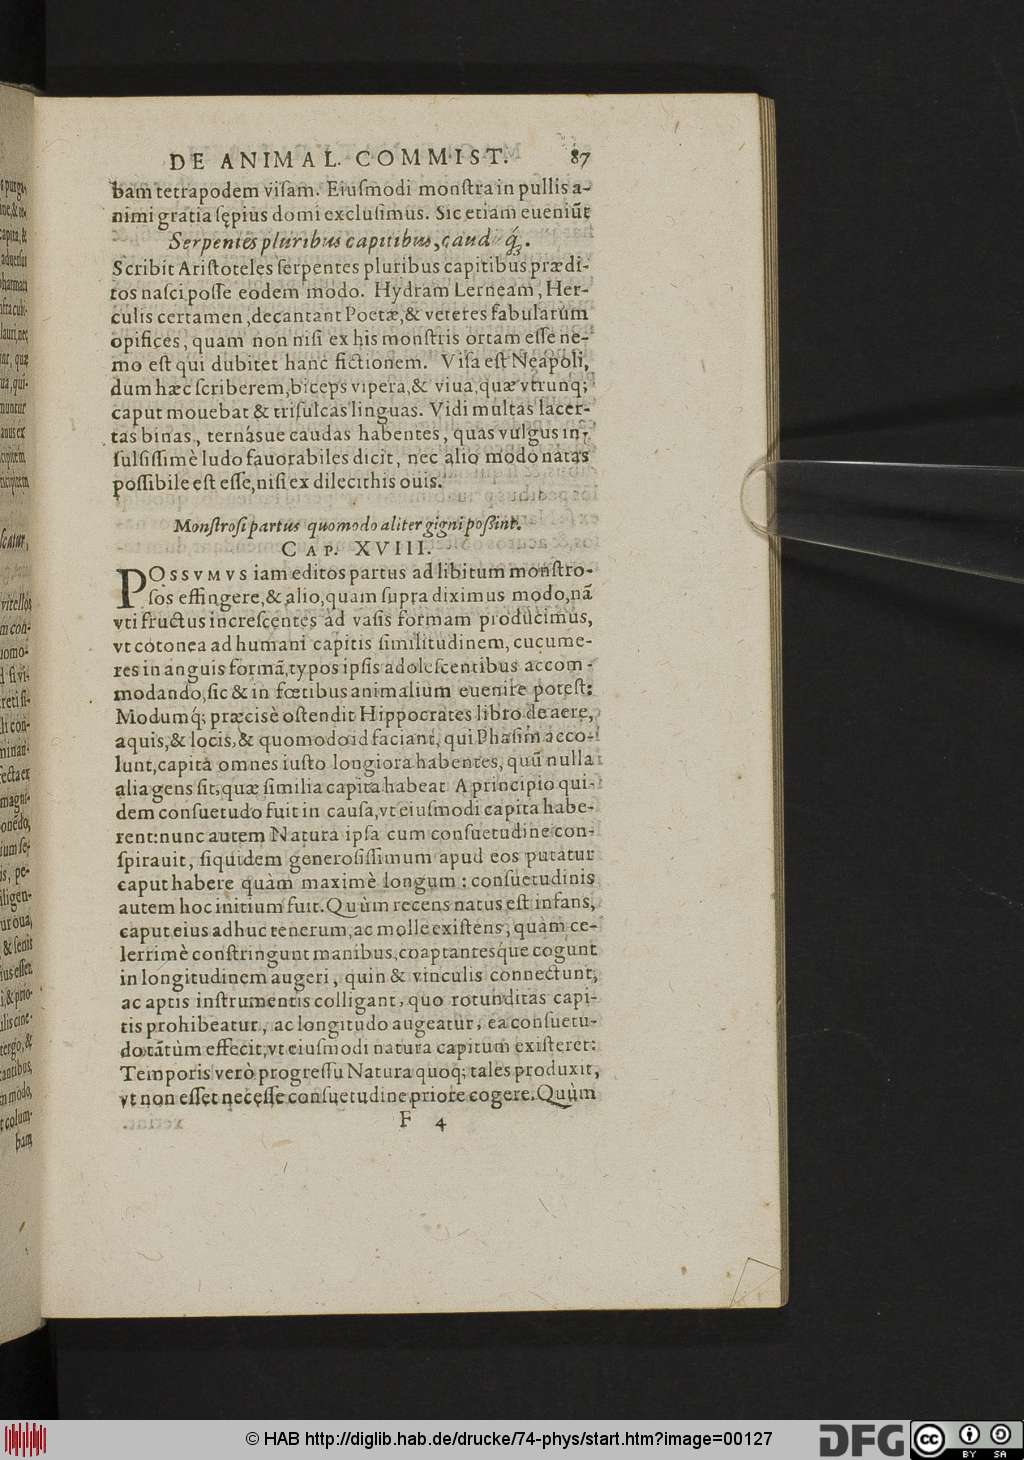 DE ANIMAL. COMMIST. 87
bam tetrapodem visam. Eiusmodi monstra in pullis a-
nimi gratia sępius domi exclusimus. Sic etiam eueniũt
Serpentes pluribus capitibus, caud q́;.
Scribit Aristoteles serpentes pluribus capitibus prædi-
tos nasci posse eodem modo. Hydram Lerneam, Her-
culis certamen, decantant Poetæ, & veteres fabularum
opifices, quam non nisi ex his monstris ortam esse ne-
mo est qui dubitet hanc fictionem. Visa est Neapoli,
dum hæc scriberem, biceps vipera, & viua, quæ vtrunq;
caput mouebat & trisulcas linguas. Vidi multas lacer-
tas binas, ternásue caudas habentes, quas vulgus in-
sulsissimè ludo fauorabiles dicit, nec alio modo natas
possibile est esse, nisi ex dilecithis ouis.
Monstrosi partus quomodo aliter gigni possint.
CAP. XVIII.
POSSVMVS iam editos partus ad libitum monstro-
sos effingere, & alio, quam supra diximus modo, nã
vti fructus increscentes ad vasis formam producimus,
vt cotonea ad humani capitis similitudinem, cucume-
res in anguis formã, typos ipsis adolescentibus accom-
modando, sic & in fœtibus animalium euenire potest:
Modumq́; præcisè ostendit Hippocrates libro de aere,
aquis, & locis, & quomodo id faciant, qui Phasim acco-
lunt, capita omnes iusto longiora habentes, quũ nulla
alia gens sit, quæ similia capita habeat A principio qui-
dem consuetudo fuit in causa, vt eiusmodi capita habe-
rent: nunc autem Natura ipsa cum consuetudine con-
spirauit, siquidem generosissimum apud eos putatur
caput habere quàm maximè longum: consuetudinis
autem hoc initium fuit. Quùm recens natus est infans,
caput eius adhuc tenerum, ac molle existens, quàm ce-
lerrimè constringunt manibus, coaptantesque cogunt
in longitudinem augeri, quin & vinculis connectunt,
ac aptis instrumentis colligant, quo rotunditas capi-
tis prohibeatur, ac longitudo augeatur, ea consuetu-
do tãtùm effecit, vt eiusmodi natura capitum existeret:
Temporis verò progressu Natura quoq; tales produxit,
vt non esset necesse consuetudine priore cogere. Quùm
F 4
© HAB http://diglib.hab.de/drucke/74-phys/start.htm?image=00127
DFG
cc
BY SA